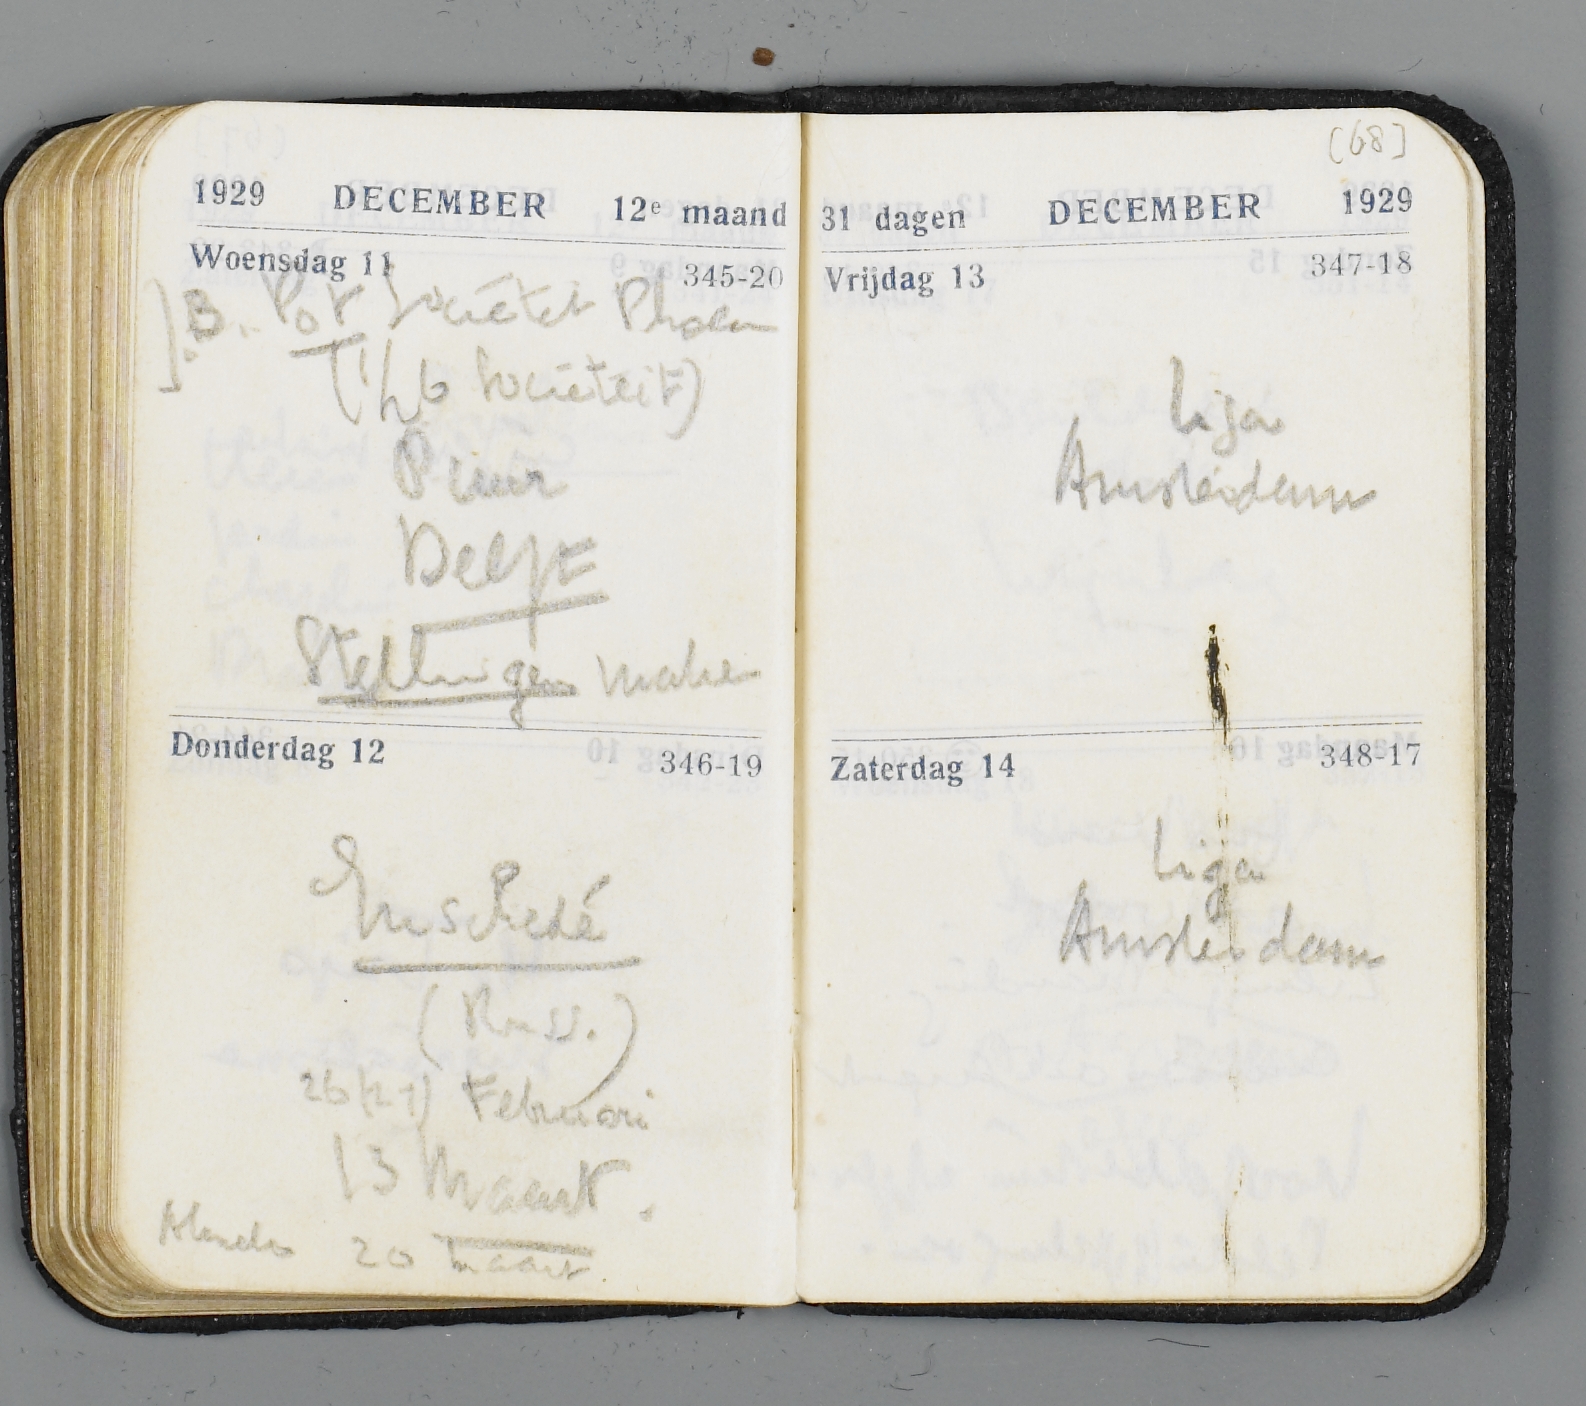 1929 DECEMBER 12e maand
Woensdag 11 345-20
B. Pot Sociëteit
Delft
Stellingen maken
Donderdag 12 346-19
Enschedé
(Russ.)
Februari
13 Maart.
20 maart.
[68]
31 dagen DECEMBER 1929
Vrijdag 13 347-18
Liga
Amsterdam
Zaterdag 14 348-17
Liga
Amsterdam